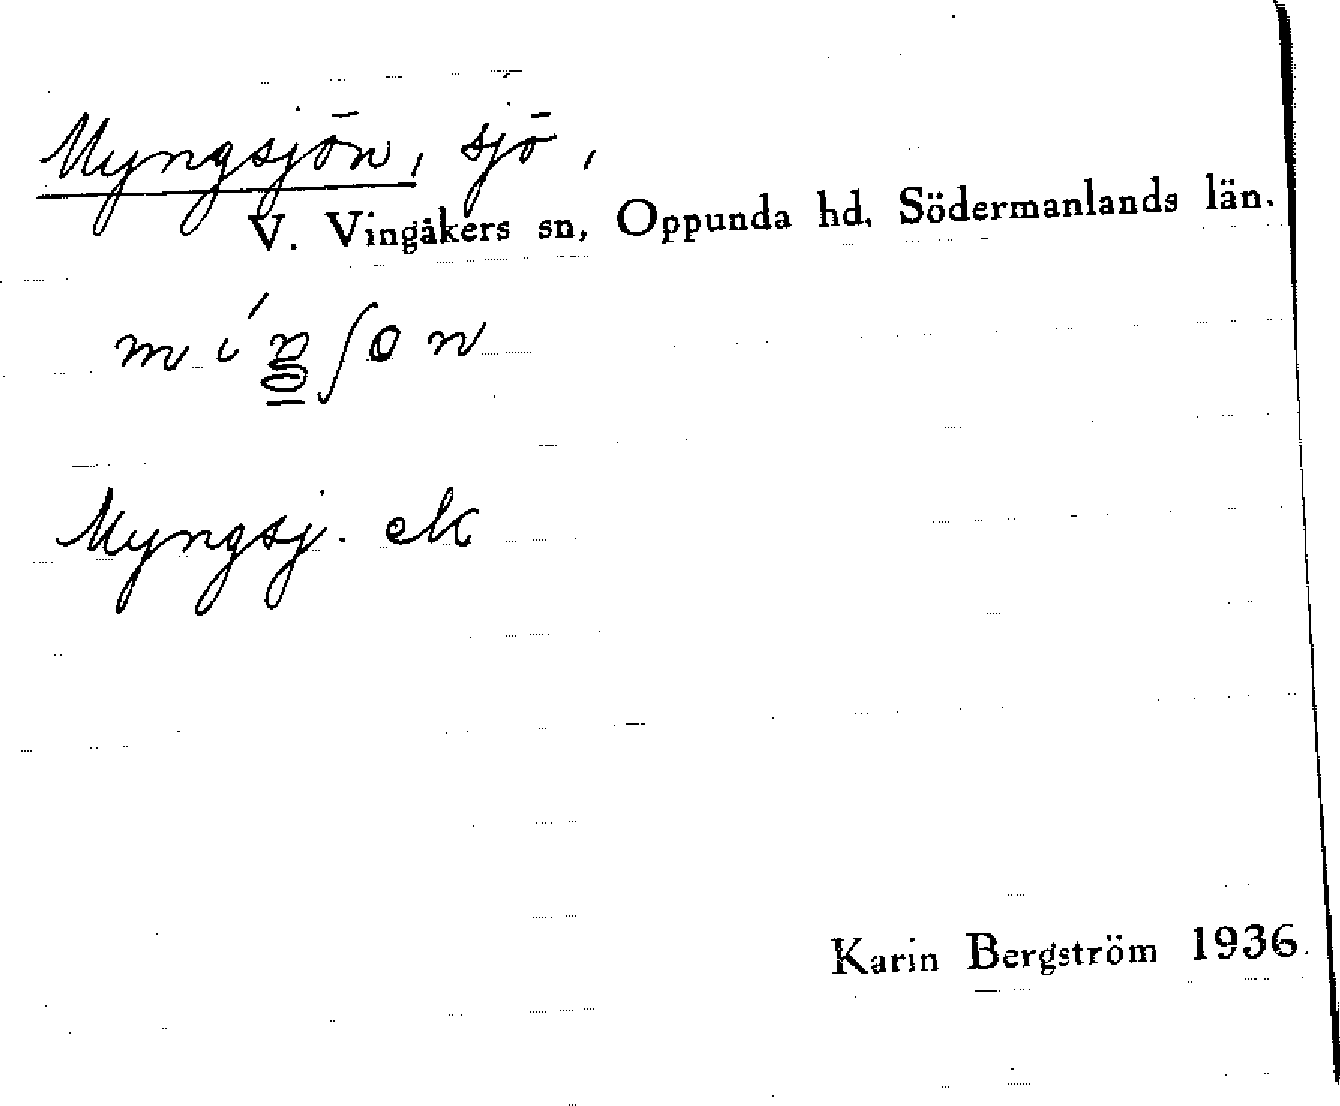 Myngsjön, sjö,
V. Vingåkers sn, Oppunda hd. Södermanlands län.
Myngsj. ek
Karin Bergström 1936.